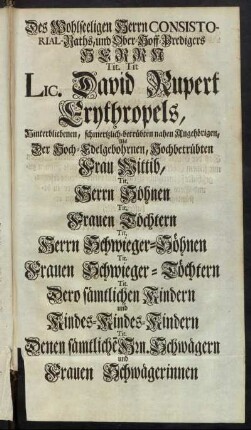 Des Wohlseeligen Herrn CONSISTO-
RIAL-Raths, und Ober-Hoff-Predigers
HERRN
Tit. Tit
LIC. David Rupert
Erythropels,
Hinterbliebenen, schmertzlich-betrübten nahen Angehörigen,
Als
Der Hoch-Edelgebohrnen, Hochbetrübten
Frau Wittib,
Tit.
Herrn Söhnen
Tit.
Frauen Töchtern
Tit.
Herrn Schwieger-Söhnen
Tit.
Frauen Schwieger-Töchtern
Tit.
Dero sämtlichen Kindern
und
Kindes-Kindes-Kindern
Tit.
Denen sämtliche Hrn. Schwägern
und
Frauen Schwägerinnen